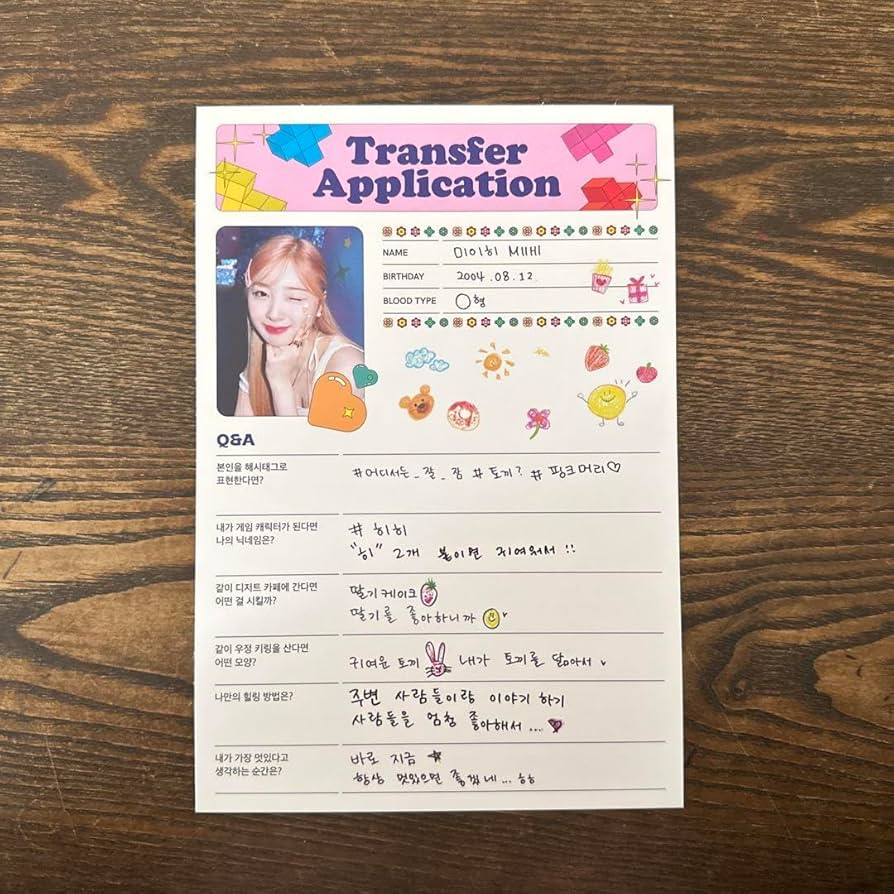 Transfer
Application
NAME 미이히 MIIHI
BIRTHDAY 2004.08.12
BLOOD TYPE O형
Q&A
본인을 해시태그로
표현한다면?
#어디서든_잘_잠 #토끼? #핑크머리♡
내가 게임 캐릭터가 된다면
나의 닉네임은?
# 히히
"히" 2개 붙이면 귀여워서 !!
같이 디저트 카페에 간다면
어떤 걸 시킬까?
딸기케이크
딸기를 좋아하니까
같이 우정 키링을 산다면
어떤 모양?
귀여운 토끼 내가 토끼를 닮아서
나만의 힐링 방법은?
주변 사람들이랑 이야기 하기
사람들을 엄청 좋아해서 ....
내가 가장 멋있다고
생각하는 순간은?
바로 지금
항상 멋있으면 좋겠네... ㅎㅎ